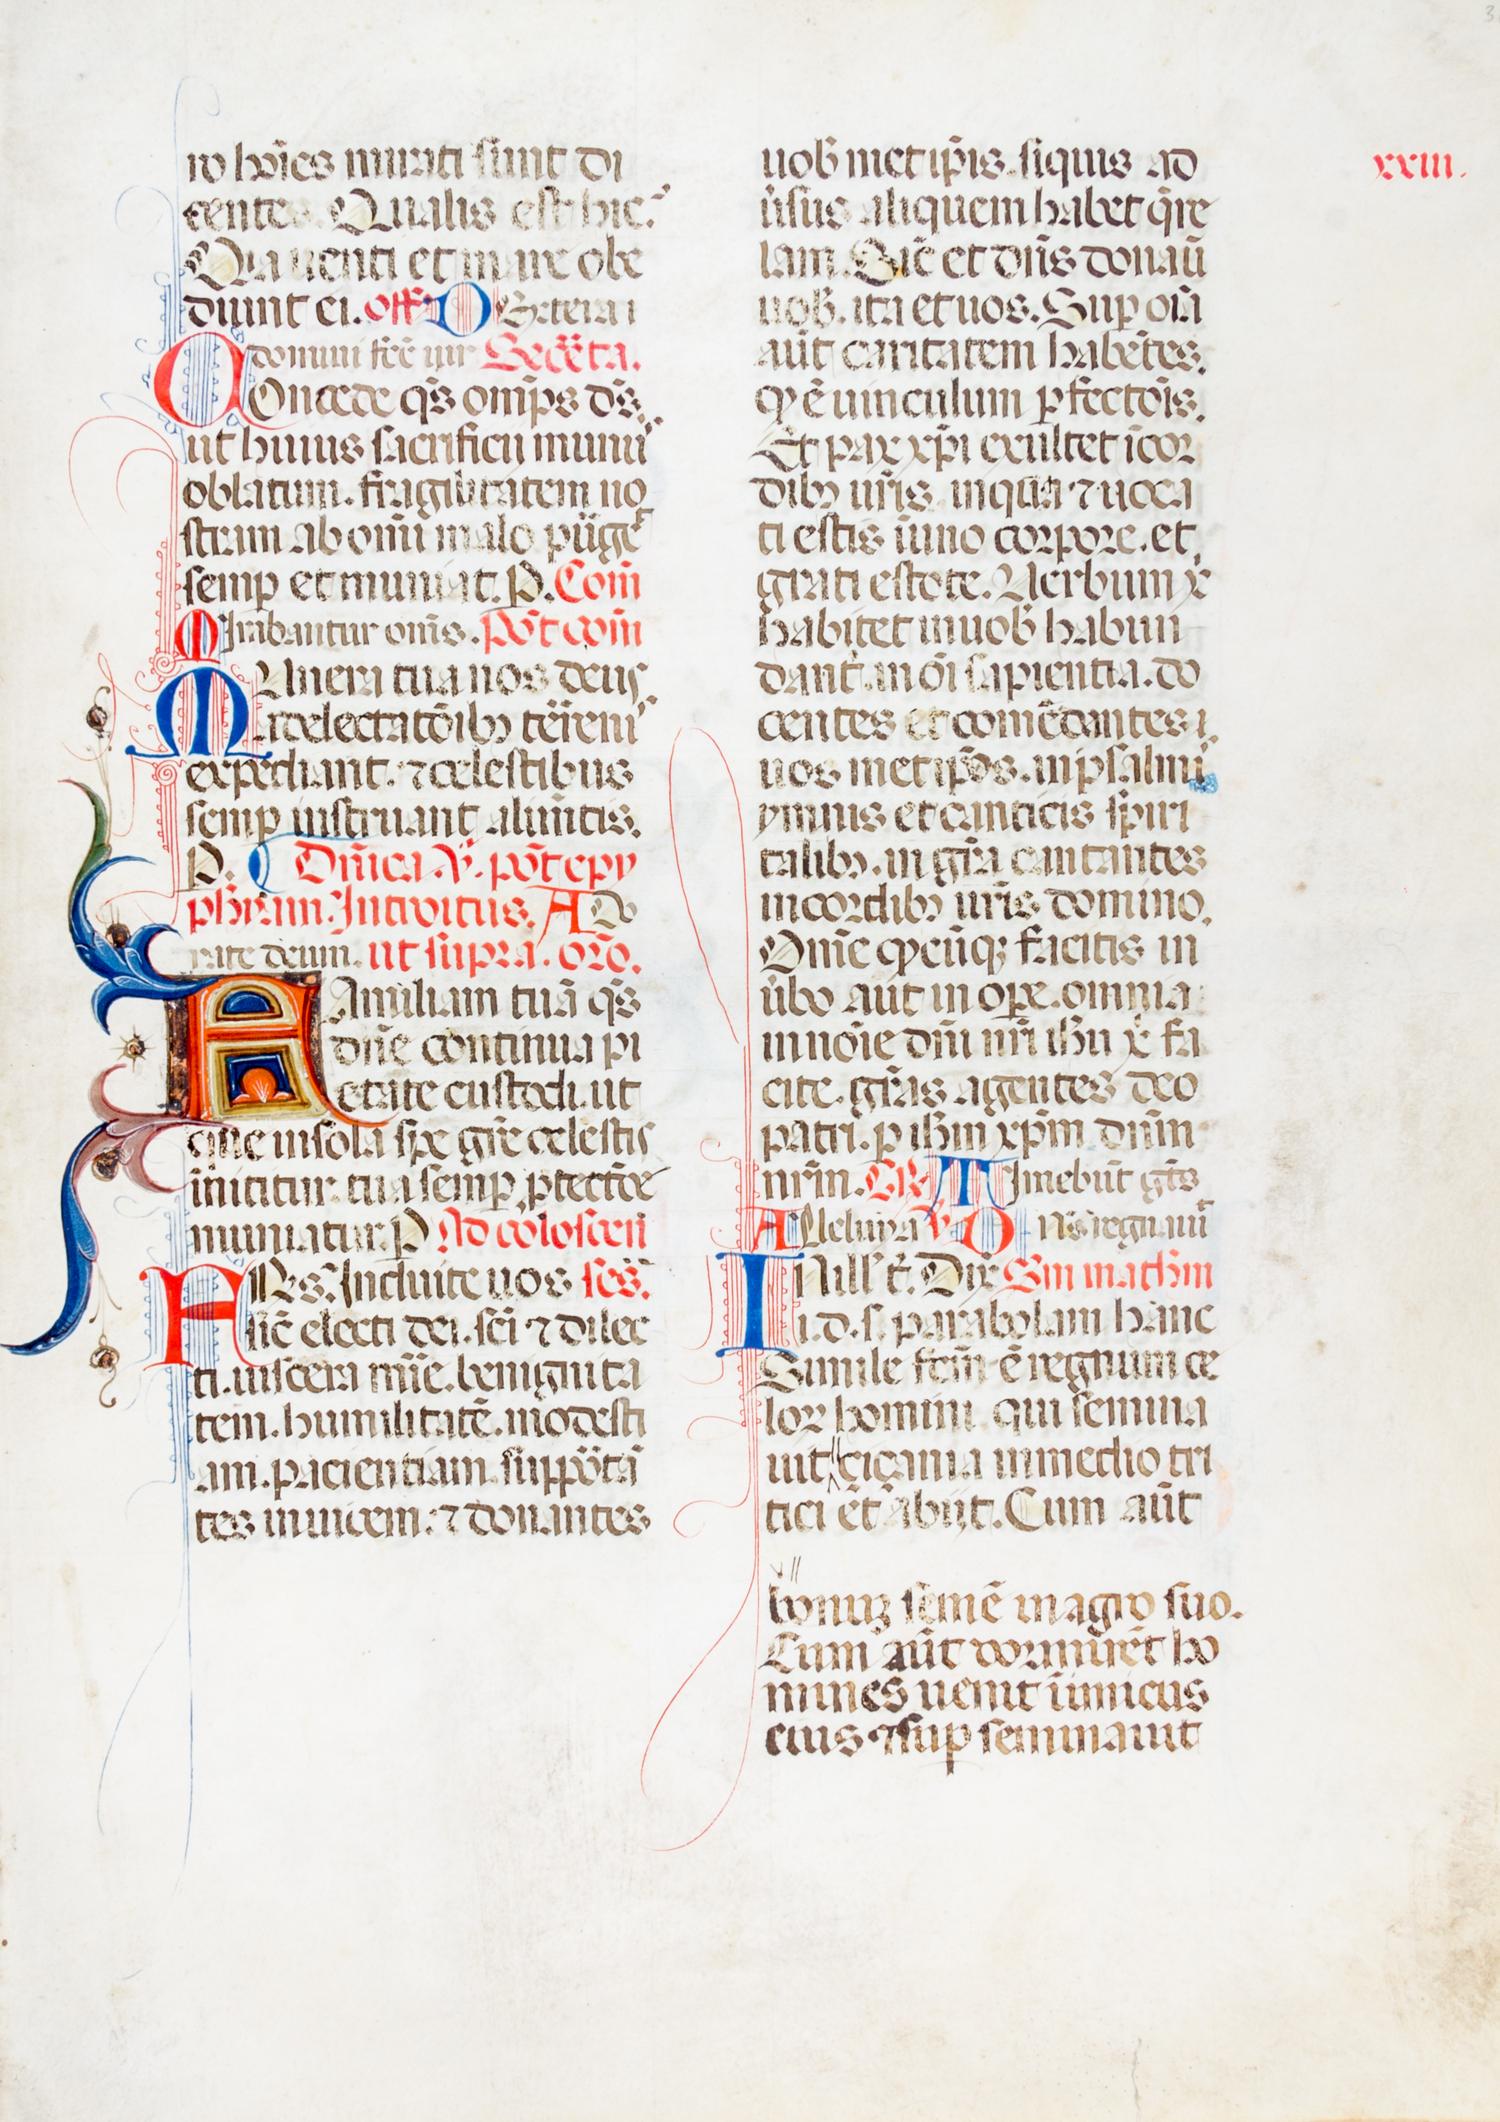 xxiii.
ro hoīes mirati sunt di
centes. Qualis est hic.
Quia uenti et mare obe
diunt ei. off. DExtera
domini fēc uir Secreta.
COncede qs̄ omīps ds̄.
ut huius sacrificii munus
oblatum. fragilitatem no
stram ab omī malo purget
semp et muniat. P. Com̄
MIrabantur om̄s. pōt com̄
MUnera tua nos deus
a delectatōibꝰ terrenis
expediant. ⁊ celestibus
semp instruant alimētis.
P. Dn̄ica. V. pōt epy
phiam. Introitus. ADo
rate deum. ut supra. oro.
FAmiliam tuā qs̄
dn̄e continua pi
etate custodi. ut
que in sola spe gr̄e celestis
innititur. tua semp ptectōe
muniatur. P Ad colocen
FRs. Induite uos ses.
sic̄ electi dei. sc̄i ⁊ dilec
ti. uiscera mīe. benignita
tem. humilitatē. modesti
am. pacientiam. suppōtā
tes inuicem. ⁊ donantes
uob̄ metip̄is. siquis ad
ūsus aliquem habet q̄re
lam. Sic̄ et dn̄s donauit
uob̄. ita et uos. Sup oīa
aūt caritatem habētes.
qđ ē uinculum pfectōis.
Et pax xp̄i exultet ī cor
dibꝰ ur̄is. in qua ⁊ uoca
ti estis ī uno corpore. et
grati estote. Uerbum xp̄i
habitet in uob̄ habun
dant̄. in oī sapientia. do
centes et comēdantes
uos metip̄os. in psalmis
ymnis et canticis sp̄iri
talibꝰ. in gr̄a cantantes
in cordibꝰ ur̄is domino.
Omē qđcūqꝫ facitis in
ūbo aut in ope. omnia
in noīe dn̄i nr̄i ihū x̄ fa
cite. gr̄as agentes deo
patri. p ihm̄ xp̄m dn̄m
nr̄m. GR TImebūt gn̄s
Alleluya V Dn̄s regnauit
IN ill' t̄. Dix̄ Sm matħm
i. d. s. parabolam hanc
Simile fcm̄ ē regnum ce
lor homini qui semina
uit // ciçania in medio tri
tici et abiit. Cum aūt
//
bonuꝫ semē in agro suo.
Cum aūt dormirēt ho
mines uenit inimicus
eius ⁊ sup seminauit